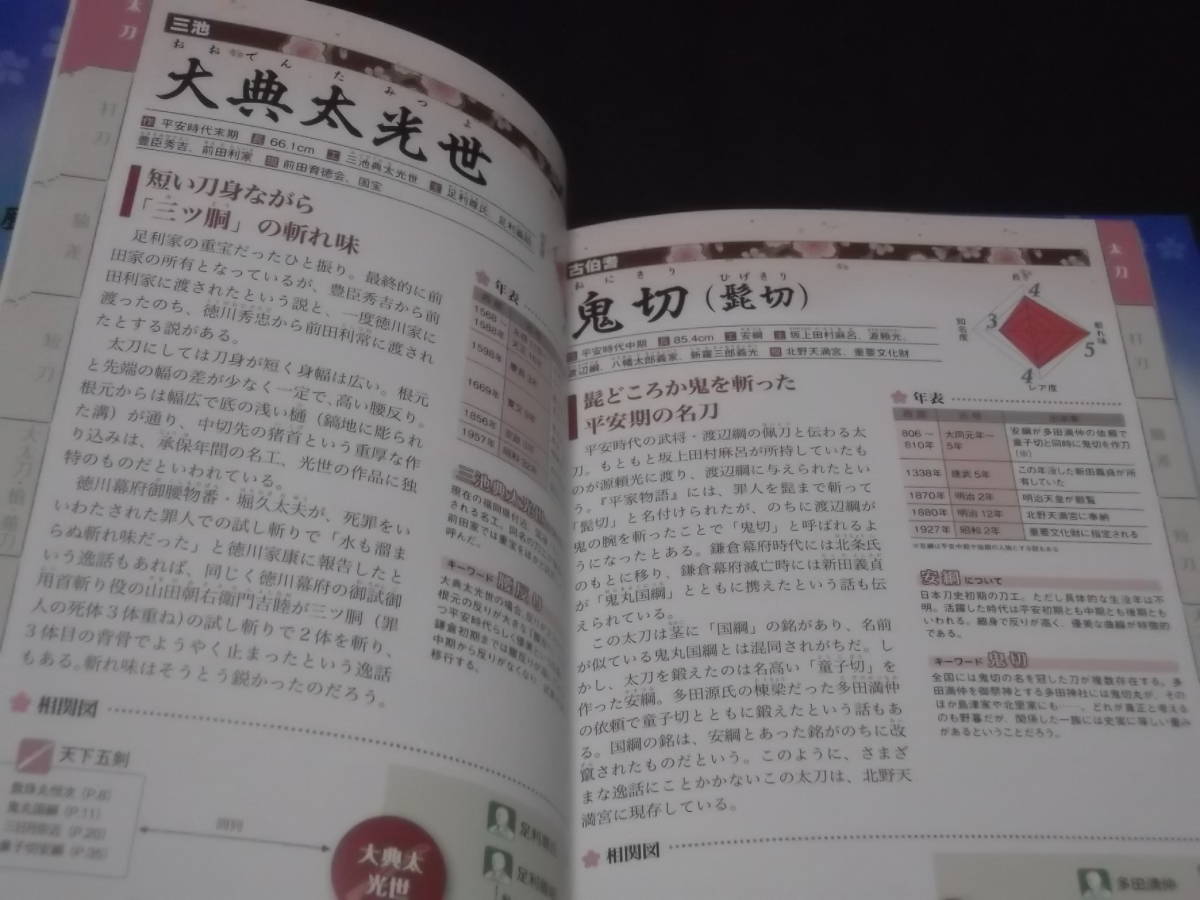 太刀
三池
おおでんたみつよ
大典太光世
作 平安時代末期 長 66.1cm 工 三池典太光世
豊臣秀吉、前田利家 現 前田育徳会、国宝
短い刀身ながら
「三ツ胴」の斬れ味
足利家の重宝だったひと振り。最終的に前
田家の所有となっているが、豊臣秀吉から前
田利家に渡されたという説と、一度徳川家に
渡ったのち、徳川秀忠から前田利常に渡され
たとする説がある。
太刀にしては刀身が短く身幅は広い。根元
と先端の幅の差が少なく一定で、高い腰反り。
根元からは幅広で底の浅い樋（鎬地に彫られ
た溝）が通り、中切先の猪首という重厚な作
り込みは、承保年間の名工、光世の作品に独
特のものだといわれている。
徳川幕府御腰物番・堀久太夫が、死罪をい
いわたされた罪人での試し斬りで「水も溜ま
らぬ斬れ味だった」と徳川家康に報告したと
いう逸話もあれば、同じく徳川幕府の御試御
用首斬り役の山田朝右衛門吉睦が三ツ胴（罪
人の死体3体重ね）の試し斬りで2体を斬り、
3体目の背骨でようやく止まったという逸話
もある。斬れ味はそうとう鋭かったのだろう。
年表
1568
1588年
1598年
1669年
1856年
1957年
三池典太光世
キーワード 腰反り
大典太光世の場合、
移行する。
相関図
天下五剣
数珠丸恒次（P.8）
鬼丸国綱（P.11）
三日月宗近（P.20）
童子切安綱（P.35）
大典太
光世
打刀
脇差
短刀
太刀
古伯耆
おにきり ひげきり
鬼切（髭切）
作 平安時代中期 長 85.4cm 工 安綱 主 坂上田村麻呂、源頼光、
渡辺綱、八幡太郎義家、新羅三郎義光 現 北野天満宮、重要文化財
長さ
4
斬れ味
5
レア度
4
知名度
3
髭どころか鬼を斬った
平安期の名刀
平安時代の武将・渡辺綱の佩刀と伝わる太
刀。もともと坂上田村麻呂が所持していたも
のが源頼光に渡り、渡辺綱に与えられたとい
う。『平家物語』には、罪人を髭まで斬って
「髭切」と名付けられたが、のちに渡辺綱が
鬼の腕を斬ったことで「鬼切」と呼ばれるよ
うになったとある。鎌倉幕府時代には北条氏
のもとに移り、鎌倉幕府滅亡時には新田義貞
が「鬼丸国綱」とともに携えたという話も伝
えられている。
この太刀は茎に「国綱」の銘があり、名前
が似ている鬼丸国綱とは混同されがちだ。し
かし、太刀を鍛えたのは名高い「童子切」を
作った安綱。多田源氏の棟梁だった多田満仲
の依頼で童子切とともに鍛えたという話もあ
る。国綱の銘は、安綱とあった銘がのちに改
竄されたものだという。このように、さまざ
まな逸話にことかかないこの太刀は、北野天
満宮に現存している。
年表
西暦 元号 出来事
806～810年 大同元年～5年 安綱が多田満仲の依頼で童子切と同時に鬼切を作刀（※）
1338年 建武5年 この年没した新田義貞が所有していた
1870年 明治2年 明治天皇が観覧
1880年 明治12年 北野天満宮に奉納
1927年 昭和2年 重要文化財に指定される
安綱について
日本刀史初期の刀工。ただし具体的な生没年は不
明。活躍した時代は平安初期とも中期とも後期とも
いわれる。細身で反りが高く、優美な曲線が特徴的
である。
キーワード 鬼切
全国には鬼切の名を冠した刀が複数存在する。多
田満仲を御祭神とする多田神社には鬼切丸が、その
ほか島津家や北里家にも……。どれが真正と考える
のも野暮だが、関係した一族には史実に等しい重み
があるということだろう。
相関図
多田満仲